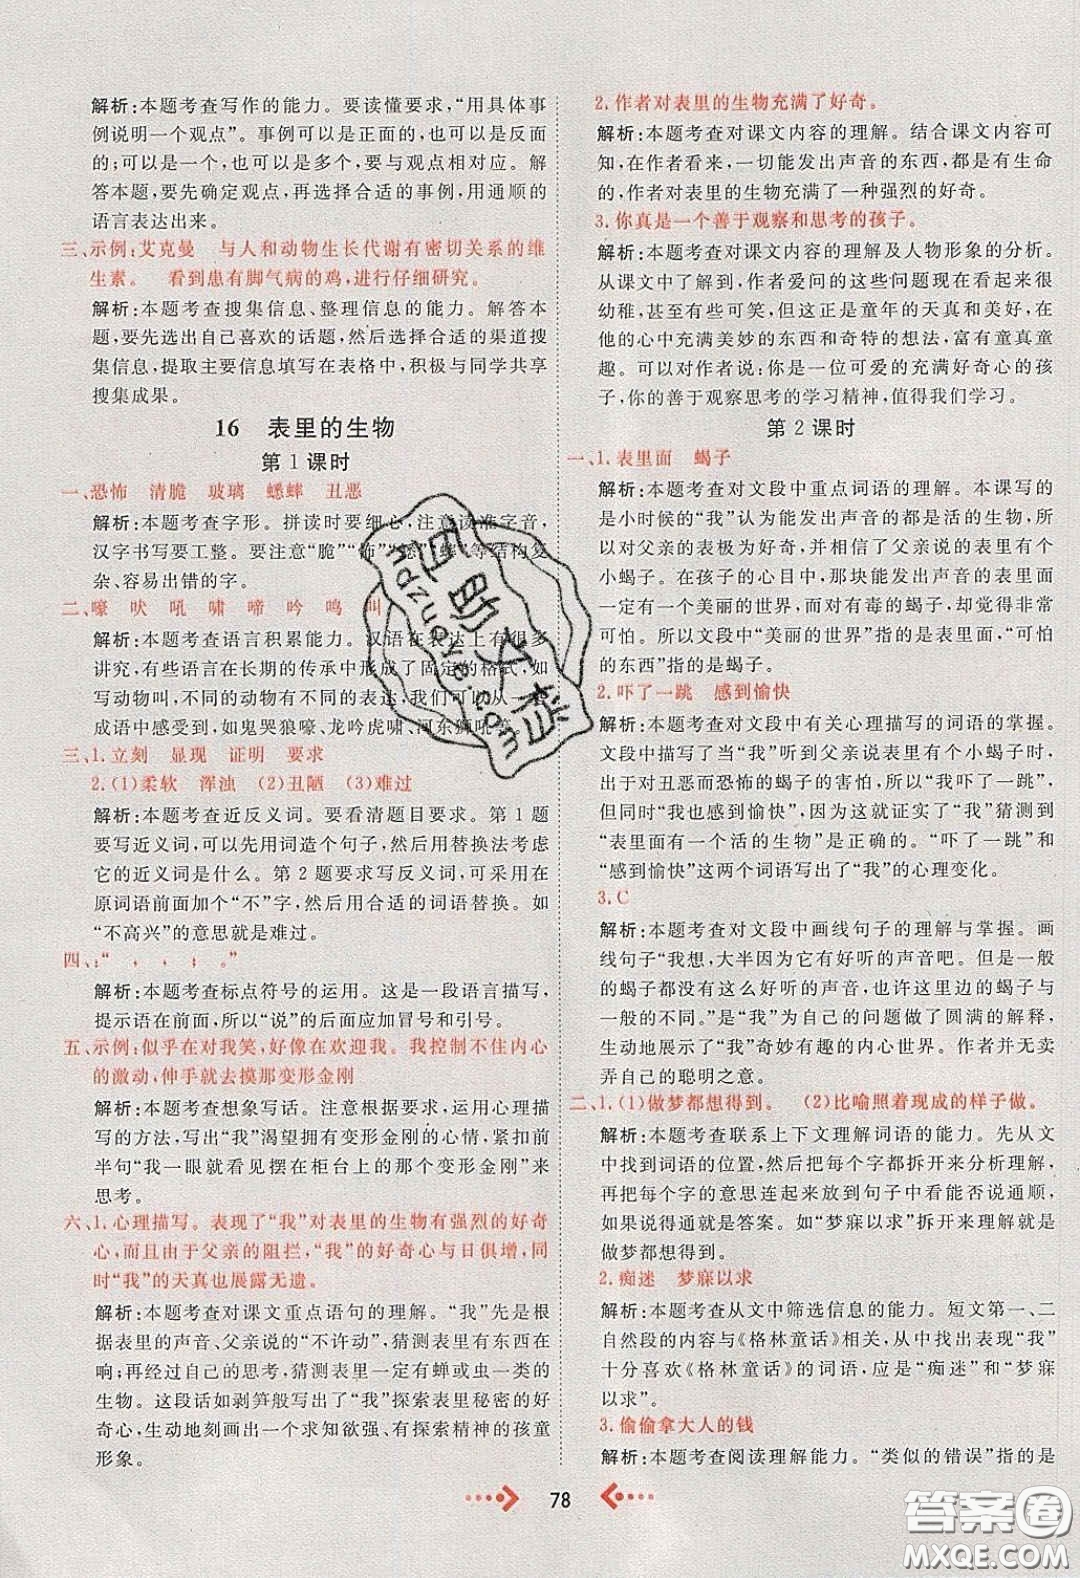 解析:本题考查写作的能力。要读懂要求,“用具体事
例说明一个观点”。事例可以是正面的,也可以是反面
的;可以是一个,也可以是多个,要与观点相对应。解
答本题,要先确定观点,再选择合适的事例,用通顺的
语言表达出来。
三、示例:艾克曼 与人和动物生长代谢有密切关系的维
生素。 看到患有脚气病的鸡,进行仔细研究。
解析:本题考查搜集信息、整理信息的能力。解答本
题,要先选出自己喜欢的话题,然后选择合适的渠道搜
集信息,提取主要信息填写在表格中,积极与同学共享
搜集成果。
16 表里的生物
第1课时
一、恐怖 清脆 玻璃 蟋蟀 丑恶
解析:本题考查字形。拼读时要细心,注意读准字音,
汉字书写要工整。要注意“脆”“怖”“蟋”“蟀”等结构复
杂、容易出错的字。
二、嚎 吠 吼 啸 啼 吟 鸣 叫
解析:本题考查语言积累能力。汉语在表达上有很多
讲究,有些语言在长期的传承中形成了固定的格式,如
写动物叫,不同的动物有不同的表达,我们
成语中感受到,如鬼哭狼嚎、龙吟虎啸、河东狮吼等。
三、1.立刻 显现 证明 要求
2.(1)柔软 浑浊 (2)丑陋 (3)难过
解析:本题考查近反义词。要看清题目要求。第1题
要写近义词,可以先用词语造个句子,再用替换法考虑
它的近义词是什么。第2题要求写反义词,可采用在
原词语前面加“不”字,然后用合适的词语替换。如
“不高兴”的意思就是难过。
四、:“ , , ; 。”
解析:本题考查标点符号的运用。这是一段语言描写,
提示语在前面,所以“说”的后面应加冒号和引号。
五、示例:似乎在对我笑,好像在欢迎我。我控制不住内心
的激动,伸手就去摸那变形金刚
解析:本题考查想象写话。注意根据要求,运用心理描
写的方法,写出“我”渴望拥有变形金刚的心情,紧扣前
半句“我一眼就看见摆在柜台上的那个变形金刚”来
思考。
六、1.心理描写。表现了“我”对表里的生物有强烈的好奇
心,而且由于父亲的阻拦,“我”的好奇心与日俱增,同
时“我”的天真也展露无遗。
解析:本题考查对课文重点语句的理解。“我”先是根
据表里的声音、父亲说的“不许动”,猜测表里的生物在
响;再经过自己的思考,猜测表里一定有蝉或虫一类的
生物。这段话如剥笋般写出了“我”探索表里秘密的好
奇心,生动地刻画出一个求知欲强、有探索精神的孩童
形象。
2.作者对表里的生物充满了好奇。
解析:本题考查对课文内容的理解。结合课文内容可
知,在作者看来,一切能发出声音的东西,都是有生命
的,作者对表里的生物充满了一种强烈的好奇。
3.你真是一个善于观察和思考的孩子。
解析:本题考查对课文内容的理解及人物形象的分析。
从课文中了解到,作者爱问的这些问题现在看来很
幼稚,甚至有些可笑,但这正是童年的天真和美好。他
在他的心中充满美妙的东西和奇特的想法,富有童真童
趣。可以对作者说:你是一位可爱的充满好奇心的孩
子,你的善于观察思考的学习精神,值得我们学习。
第2课时
一、1.表里面 蝎子
解析:本题考查对文段中重点词语的理解。本课写的
是小时候的“我”认为能发出声音的都是活的生物,
所以对父亲的表极为好奇,并相信了父亲说的表里有
小蝎子。在孩子的心目中,那块能发出声音的表里面
一定有一个美丽的世界,而对于有毒的蝎子,却觉得非常
可怕。所以文段中“美丽的世界”指的是表里面,“可怕
的东西”指的是蝎子。
2.吓了一跳 感到愉快
解析:本题考查对文段中有关心理描写的词语的掌握。
文段中描写了当“我”听到父亲说表里有个小蝎子时,
出于对丑恶而恐怖的蝎子的害怕,所以“我吓了一跳”,
但同时“我也感到愉快”,因为这就证实了“我”猜测到
“表里面有一个活的生物”是正确的。“吓了一跳”和
“感到愉快”这两个词语写出了“我”的心理变化。
3.C
解析:本题考查对文段中画线句子的理解与掌握。画
线句子“我想,大半因为它有好听的声音吧。但是一般
的蝎子都没有这么好听的声音,也许这里边的蝎子与
一般的不同。”是“我”为自己的问题做了圆满的解释,
生动地展示了“我”奇妙有趣的内心世界。作者并无卖
弄自己的聪明之意。
二、1.(1)做梦都想得到。 (2)比喻照着现成的样子做。
解析:本题考查联系上下文理解词语的能力。先从文
中找到词语的位置,然后把每个字都拆开来分析理解,
再把每个字的意思连起来放到句子中看能否说通顺,
如果说得通顺就是答案。如“梦寐以求”拆开来理解就是
做梦都想得到。
2.痴迷 梦寐以求
解析:本题考查从文中筛选信息的能力。短文第一、二
自然段的内容与《格林童话》相关,从中找出表现“我”
十分喜欢《格林童话》的词语,应是“痴迷”和“梦寐
以求”。
3.偷偷拿大人的钱
解析:本题考查阅读理解能力。“类似的错误”指的是
78
答案圈
MXQE.COM